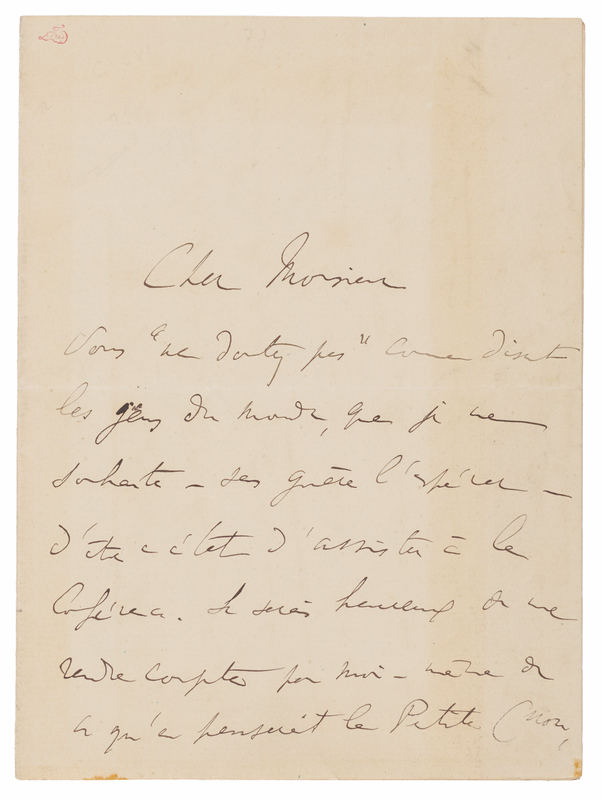 Cher Monsieur
Vous "ne doutez pas" comme disent
les gens du monde, que je ne
souhaite – sans guère l'espérer –
d'être en état d'assister à la
Conférence. Je serais heureux de me
rendre compte par moi-même de
ce qu'en penserait la Petite (Mon,